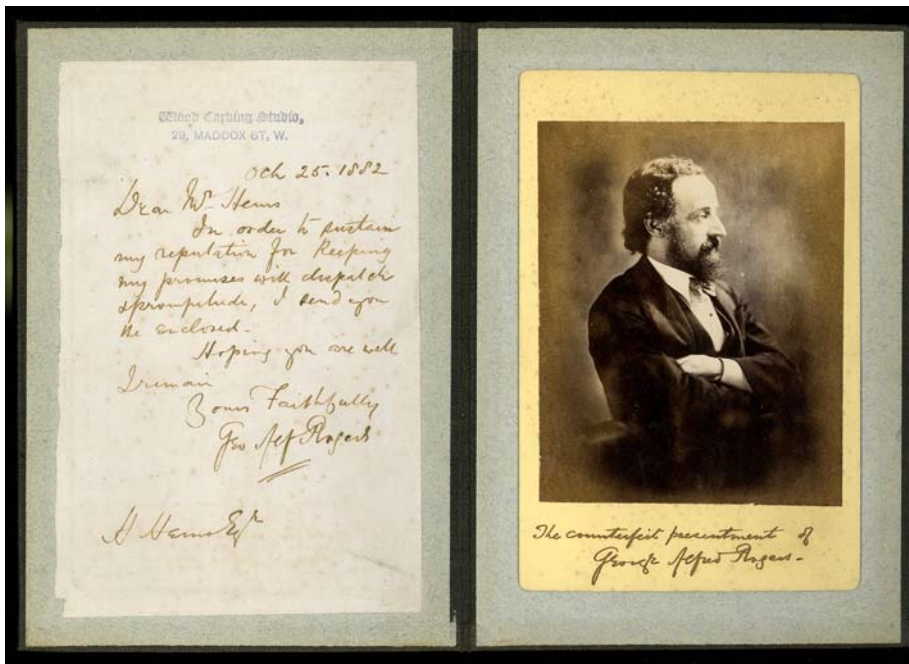 Wood Carving Studio,
29, MADDOX ST, W.
Oct 25. 1882
Dear Mr Hems
In order to sustain
my reputation for Keeping
my promises with dispatch
& promptitude, I send you
the enclosed.
Hoping you are well
I remain
Yours Faithfully
Geo Alf Rogers
H Hems Esqr
The counterfeit presentment of
George Alfred Rogers.